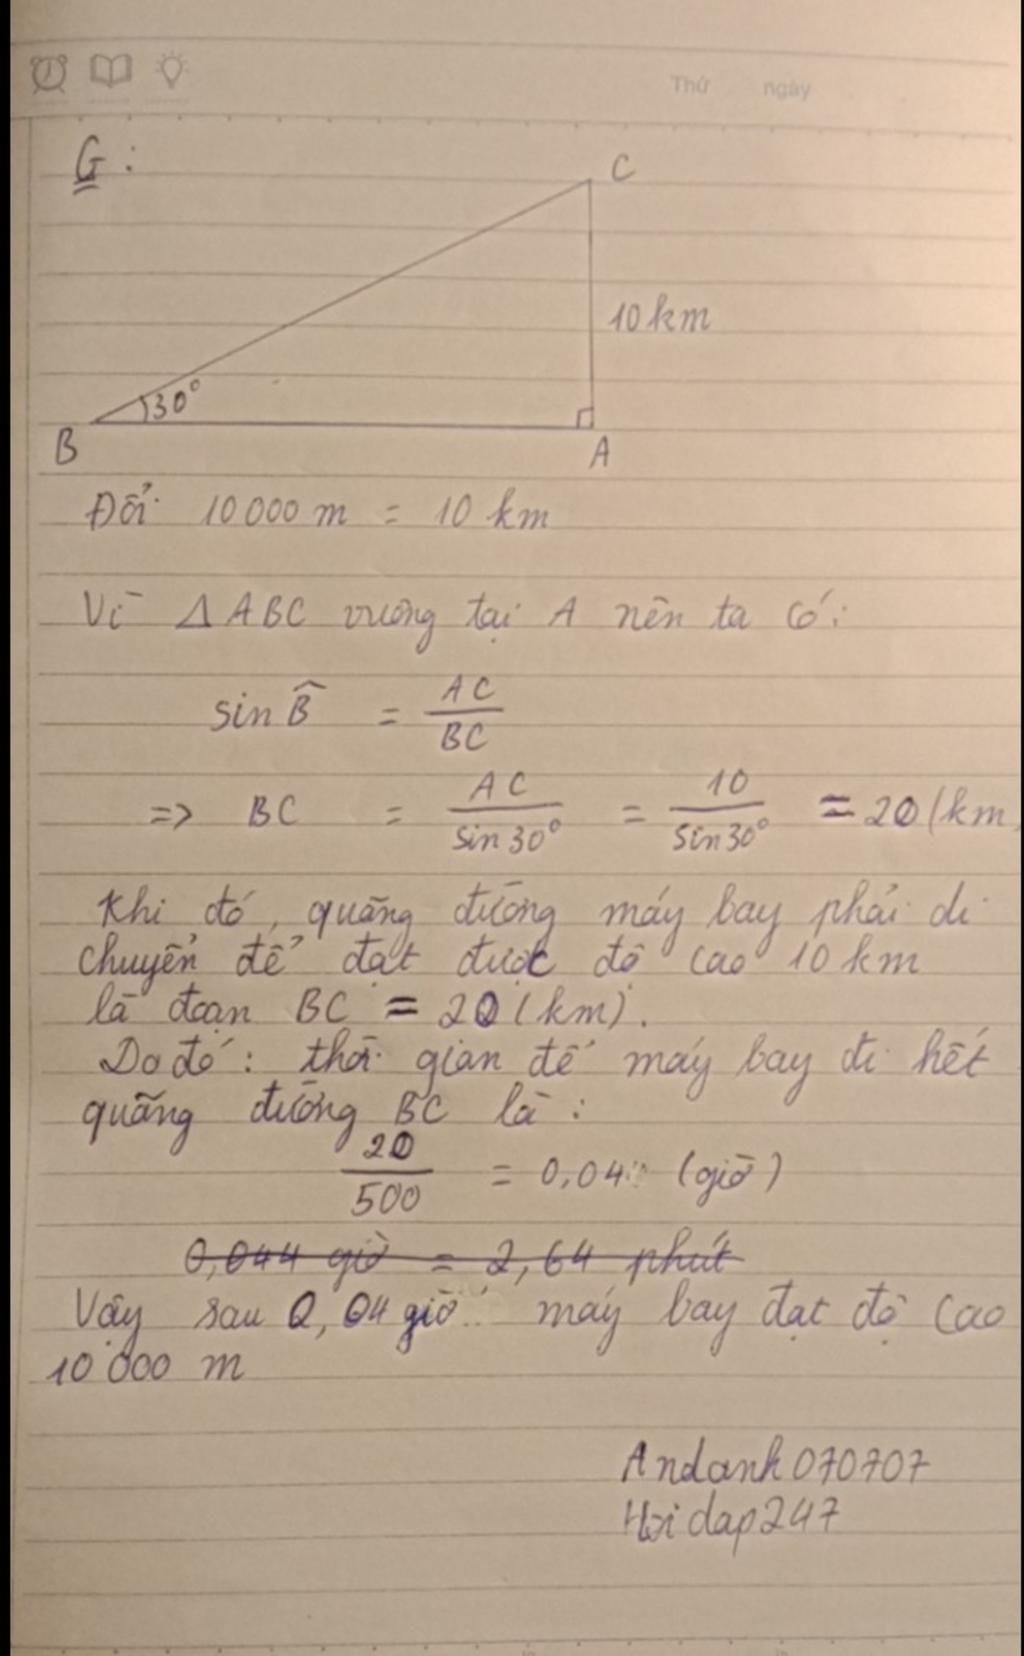 Thứ ngày
G :
C
10 km
30°
B
A
Đổi 10 000 m = 10 km
Vì Δ ABC vuông tại A nên ta có:
sin B̂ = AC / BC
=> BC = AC / sin 30° = 10 / sin 30° = 20 (km
Khi đó, quãng đường máy bay phải di
chuyển để đạt được độ cao 10 km
là đoạn BC = 20 (km).
Do đó : thời gian để máy bay đi hết
quãng đường BC là :
20 / 500 = 0,04 (giờ)
0,044 giờ = 2,64 phút
Vậy sau 0,04 giờ máy bay đạt độ cao
10 000 m
Andanh070707
Hoidap247